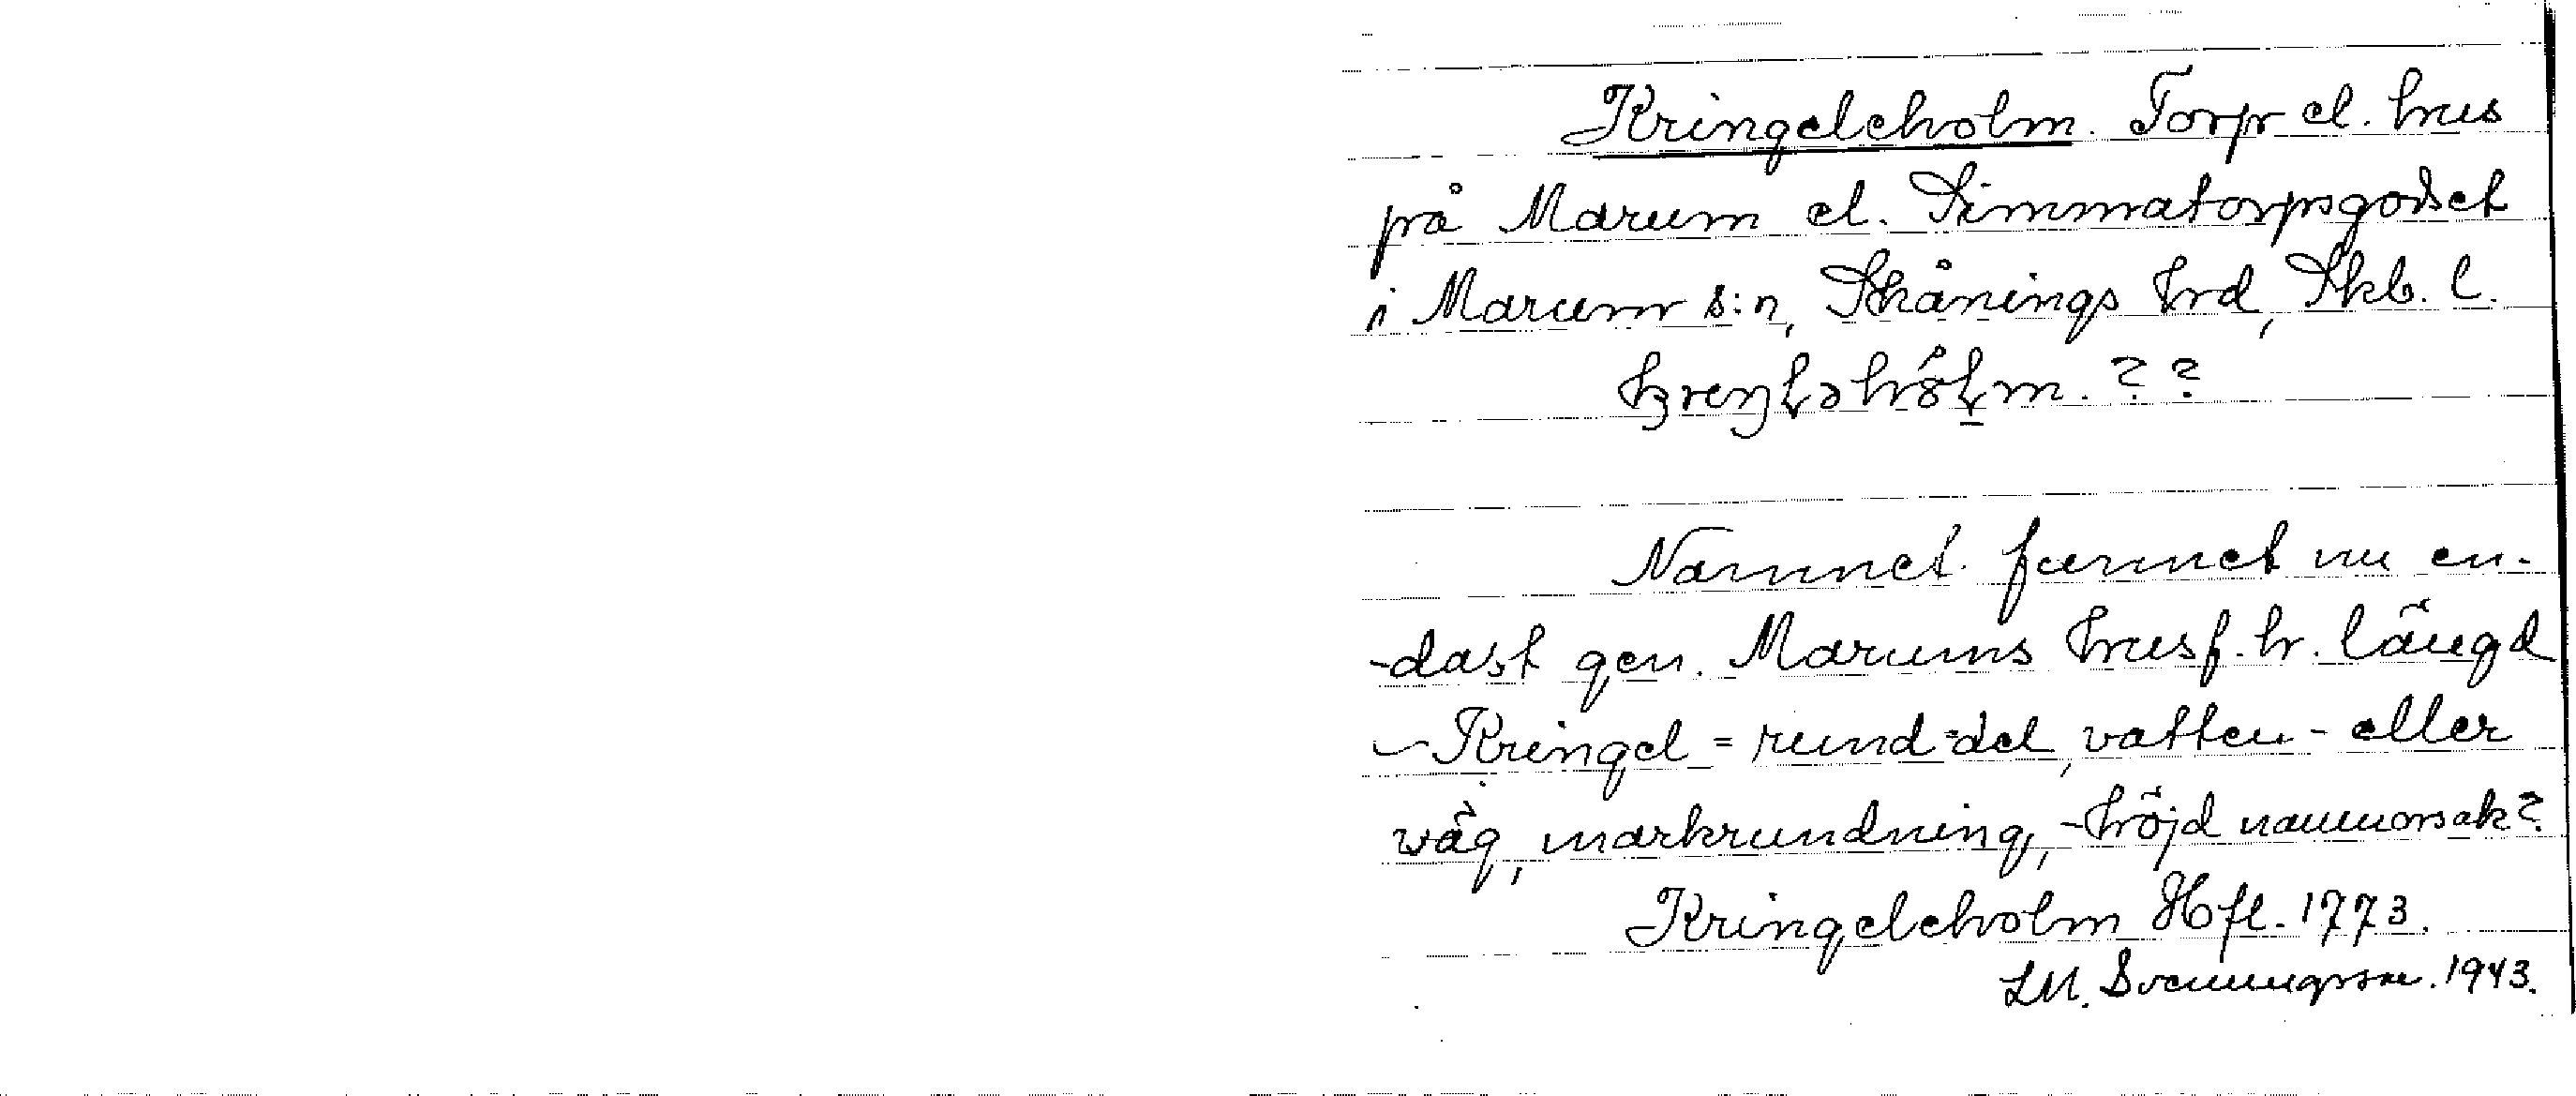 Kringeleholm. Torp el. hus
på Marum el. Simmatorpsgodset
i Marum s:n, Skånings hrd, Skb. l.
??
Namnet funnet nu en-
-dast gen. Marums husf. h. längd
- Kringel = rund=del, vatten- eller
väg, markrundning, -höjd namnorsak?
Kringeleholm Hfl. 1773.
LM. Svenungsson. 1943.